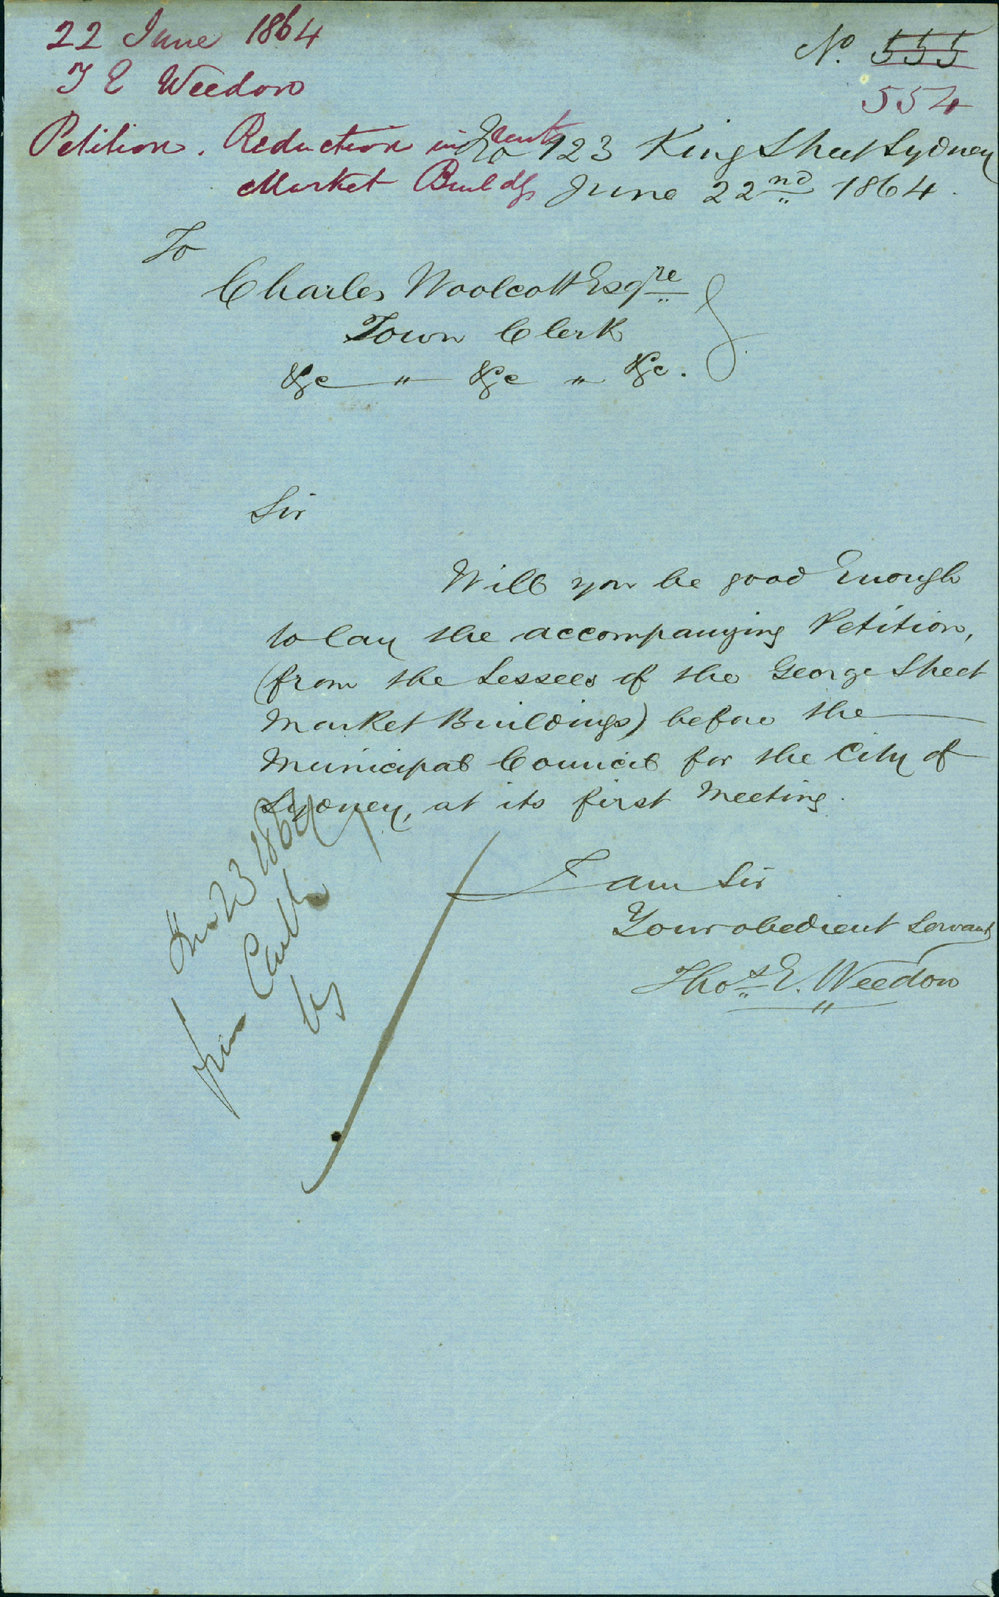 22 June 1864
T E Weedon
Petition. Reduction in rents
Market Buildgs
No. 555
554
No 123 King Street Sydney
June 22nd 1864.
To
Charles Woolcott Esqre
Town Clerk
&c " &c " &c.
Sir
Will you be good Enough
to lay the accompanying Petition,
(from the Lessees of the George Street
Market Buildings) before the
Municipal Council for the City of
Sydney, at its first Meeting.
I am Sir
Your obedient Servant
Thos E. Weedon
23 1864